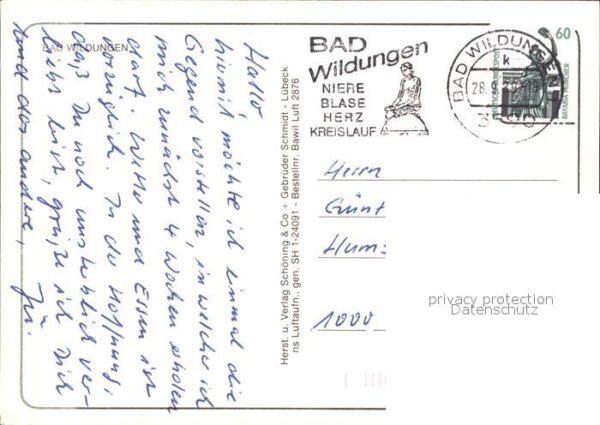 BAD WILDUNGEN
Hallo
hiermit möchte ich einmal die
Gegend vorstellen, in welche ich
mich zunächst 4 Wochen erholen
darf. Wetter und Essen ist
vorzüglich. In der Hoffnung,
daß Du noch unsterblich ver-
liebt bist, grüße ich Dich
und das andere,
Herst. u. Verlag Schöning & Co + Gebrüder Schmidt - Lübeck
ns Luftaufn., gen. SH 1-24091 - Bestellnr. Bawil Luft 2876
BAD
Wildungen
NIERE
BLASE
HERZ
KREISLAUF
BAD WILDUNGEN
k
28.9.
60
DEUTSCHE BUNDESPOST
BAVARIA MÜNCHEN
Herrn
Günt
Hum
1000
privacy protection
Datenschutz